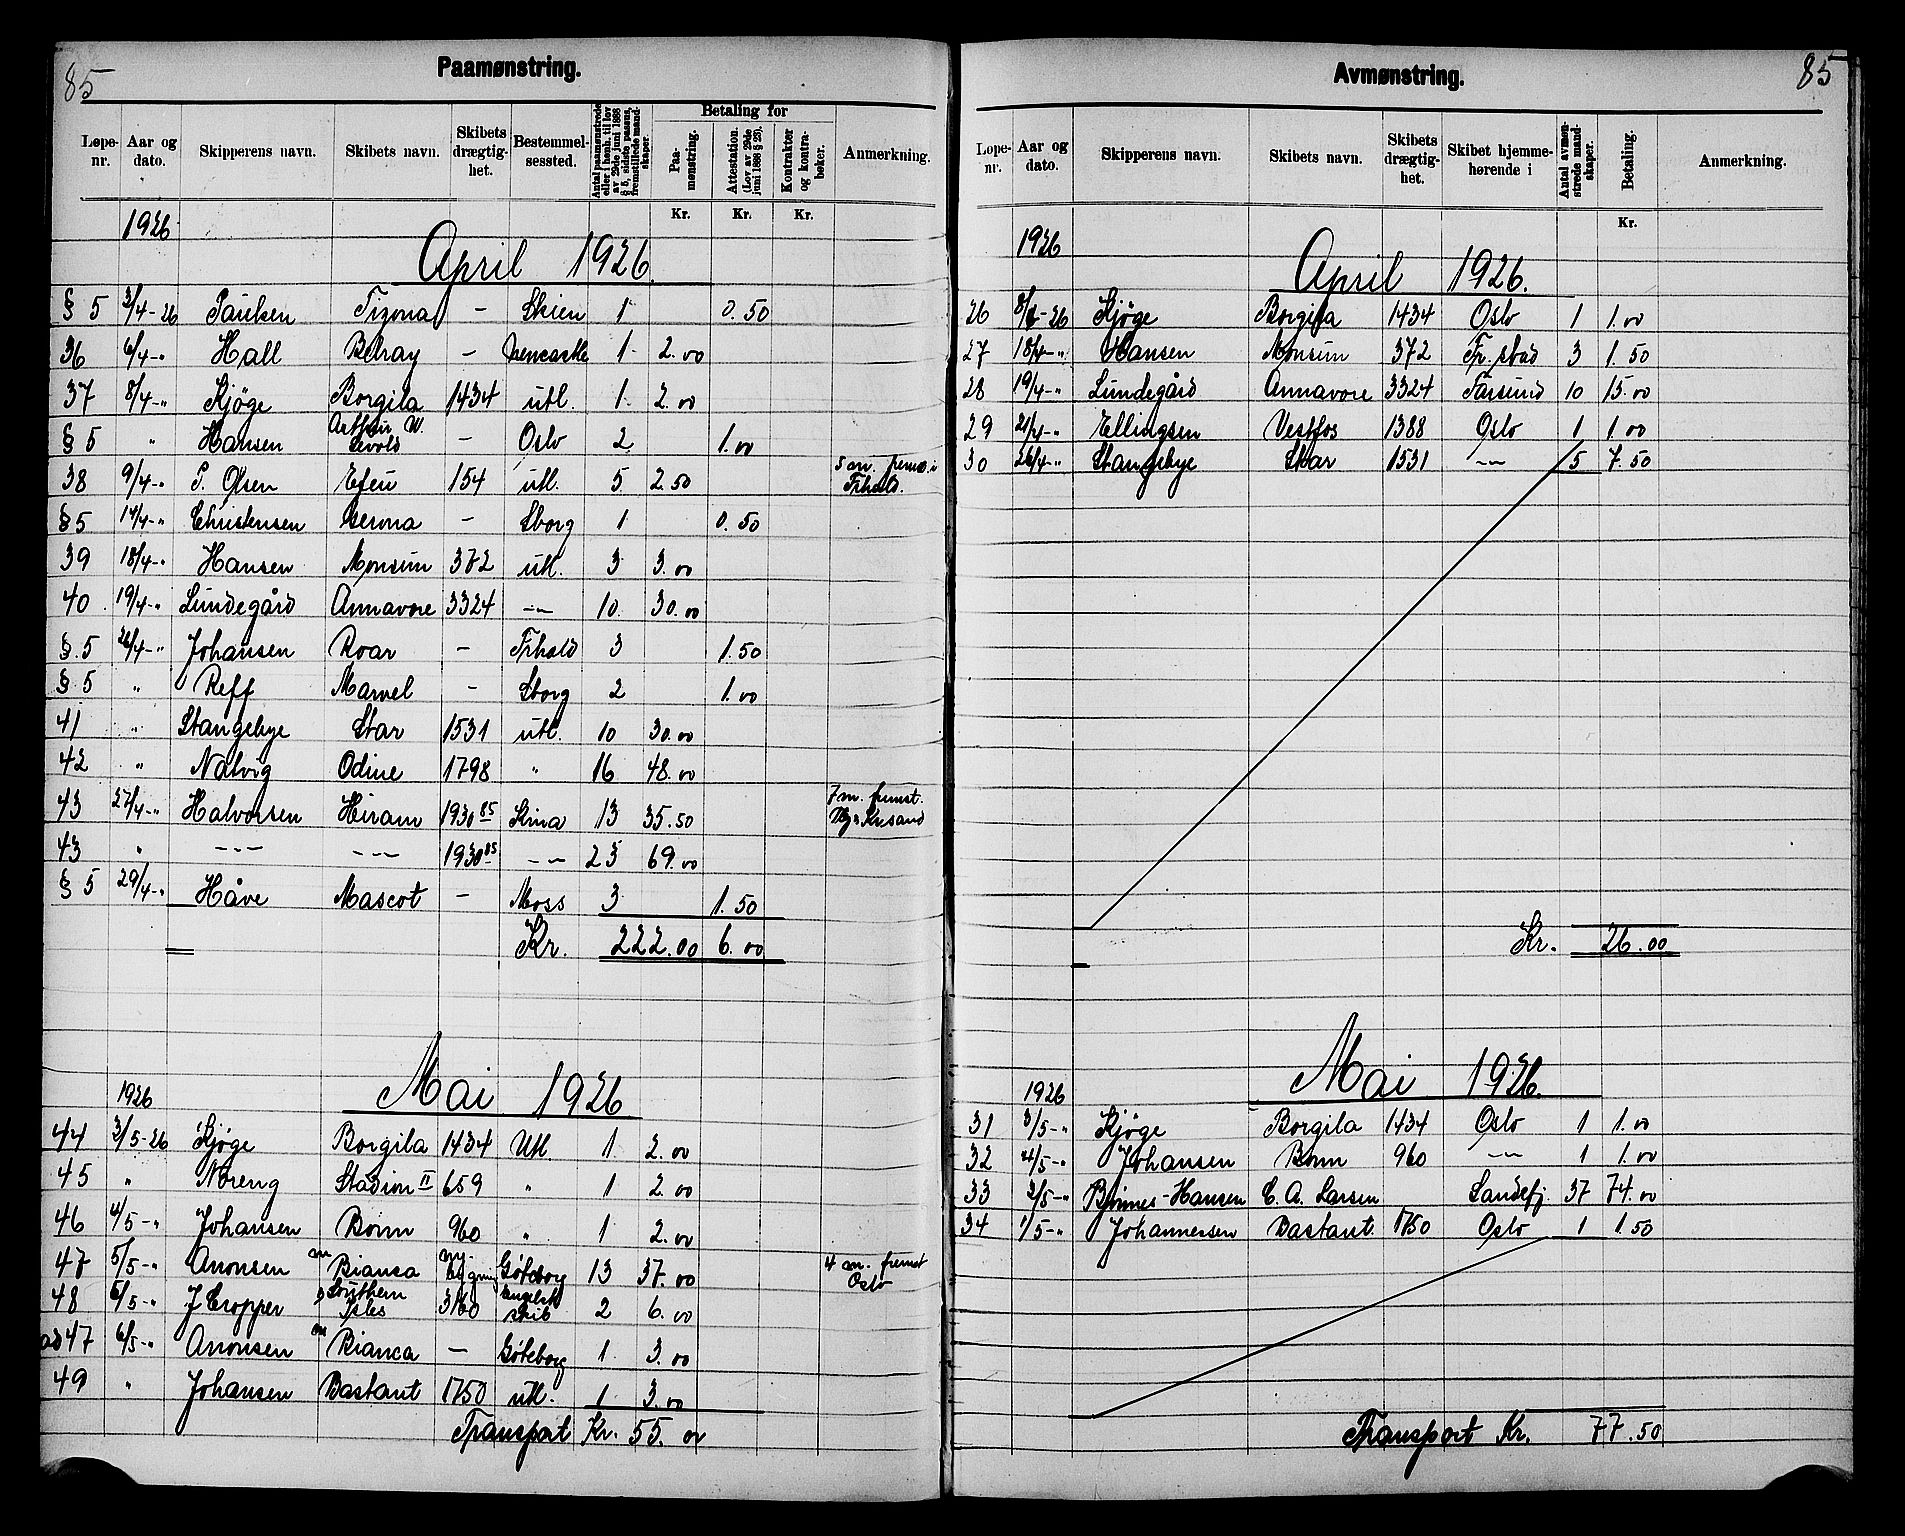 85
Paamønstring.
Løpe-nr. Aar og dato. Skipperens navn. Skibets navn. Skibets drægtig-het. Bestemmel-sessted. Antal paamønstrede eller i henh. til lov av 29de juni 1888 § 5, sidste passus, fremstillede mand-skaper. Betaling for Paa-mønstring. Attestation. (Lov av 29de juni 1888 § 25). Kontrakter og kontra-bøker. Anmerkning.
Kr. Kr. Kr.
1926
April 1926
§ 5 3/4-26 Paulsen Tizona - Skien 1 0.50
36 6/4-" Hall Belray - 1 2.00
37 8/4-" Kjøge Borgila 1434 utl. 1 2.00
§ 5 " Hansen Arthur W. Sevold - Oslo 2 1.00
38 9/4-" P. Olsen Efeu 154 utl. 5 2.50 5 m. frems. i Frhald.
§ 5 14/4-" Christensen Gerona - Sborg 1 0.50
39 18/4-" Hansen Monsun 372 utl. 3 3.00
40 19/4-" Lundegård Annavore 3324 -"- 10 30.00
§ 5 26/4-" Johansen Roar - Frhald 3 1.50
§ 5 " Reff Marvel - Sborg 2 1.00
41 " Stangebye Star 1531 utl. 10 30.00
42 " Natvig Odine 1798 " 16 48.00
43 27/4-" Halvorsen Hiram 1930 85 Kina 13 35.50 7 m. fremst. Krsand
43 " -"- -"- 1930 85 -"- 23 69.00
§ 5 29/4-" Håve Mascot - Moss 3 1.50
Kr. 222.00 6.00
1926
Mai 1926
44 3/5-26 Kjøge Borgila 1434 Utl. 1 2.00
45 " Noreng Stadion II 659 " 1 2.00
46 4/5-" Johansen Bonn 960 " 1 2.00
47 5/5-" Aronsen m Bianca ny bygning Göteborg 13 37.00 4 m. fremst Oslo
48 5/5-" J Cropper Southern Isles 3160 Engelsk skib 2 6.00
ad 47 6/5-" Aronsen m Bianca - Göteborg 1 3.00
49 " Johansen Bastant 1750 utl. 1 3.00
Transport Kr. 55.00
85
Avmønstring.
Løpe-nr. Aar og dato. Skipperens navn. Skibets navn. Skibets drægtig-het. Skibet hjemme-hørende i Antal avmøn-strede mand-skaper. Betaling. Anmerkning.
Kr.
1926
April 1926.
26 8/4-26 Kjøge Borgila 1434 Oslo 1 1.00
27 18/4-" Hansen Monsun 372 Fr.stad 3 1.50
28 19/4-" Lundegård Annavore 3324 Farsund 10 15.00
29 21/4-" Ellingsen Vestfos 1388 Oslo 1 1.00
30 26/4-" Stangebye Star 1531 -"- 5 7.50
Kr. 26.00
1926
Mai 1926.
31 3/5-" Kjøge Borgila 1434 Oslo 1 1.00
32 4/5-" Johansen Bonn 960 -"- 1 1.00
33 3/5-" Bjønnes-Hansen C. A. Larsen Sandefj. 37 74.00
34 1/5-" Johannessen Bastant 1750 Oslo 1 1.50
Transport Kr. 77.50